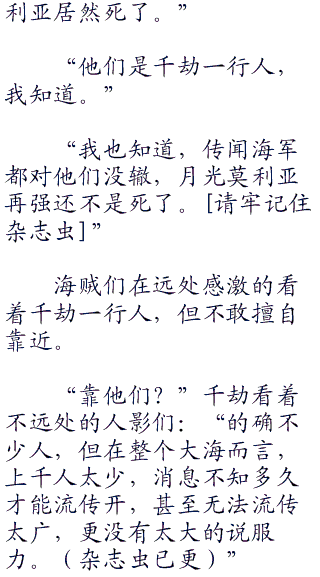 利亚居然死了。”
“他们是千劫一行人，
我知道。”
“我也知道，传闻海军
都对他们没辙，月光莫利亚
再强还不是死了。[请牢记住
杂志虫]”
海贼们在远处感激的看
着千劫一行人，但不敢擅自
靠近。
“靠他们？”千劫看着
不远处的人影们：“的确不
少人，但在整个大海而言，
上千人太少，消息不知多久
才能流传开，甚至无法流传
太广，更没有太大的说服
力。（杂志虫已更）”